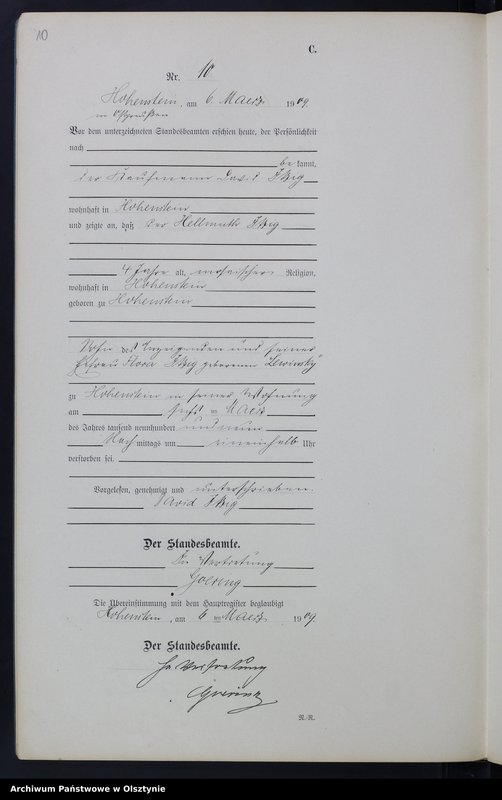 10
C.
Nr. 10
Hohenstein, am 6. Maerz 1909
in Ostpreußen
Vor dem unterzeichneten Standesbeamten erschien heute, der Persönlichkeit
nach
be kannt,
der Kaufmann David Itzig
wohnhaft in Hohenstein
und zeigte an, daß der Hellmuth Itzig
4 Jahre alt, mosaischer Religion,
wohnhaft in Hohenstein
geboren zu Hohenstein
Sohn des Anzeigenden und seiner
Ehefrau Flora Itzig geborenen Lewinsky
zu Hohenstein in seiner Wohnung
am sechsten Maerz
des Jahres tausend neunhundert und neun
Nach mittags um eineinhalb Uhr
verstorben sei.
Vorgelesen, genehmigt und unterschrieben.
David Itzig
Der Standesbeamte.
In Vertretung
Goering
Die Übereinstimmung mit dem Hauptregister beglaubigt
Hohenstein, am 6. ten Maerz 1909
Der Standesbeamte.
In Vertretung
Goering
R.-R.
Archiwum Państwowe w Olsztynie